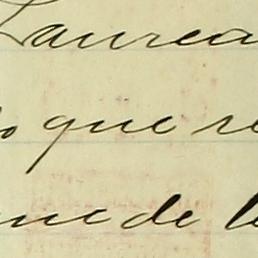 Laurea
o que re
ue de l